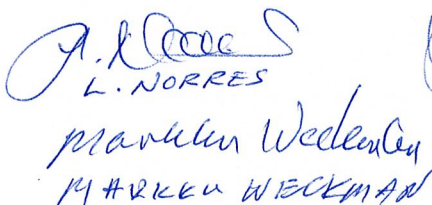 L. NORRES
Markku Weckman
MARKKU WECKMAN